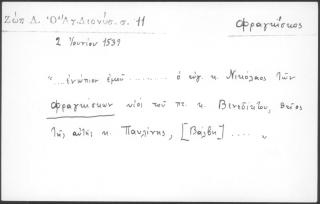 Ζώη Λ. Ὁ Ἅγ. Διονύσ. σ. 11
Φραγκίσκος
2 Ἰουνίου 1539
„ ..... ἐνώπιον ἐμοῦ ........... ὁ εὐγ. κ. Νικόλαος τῶν
Φραγκίσκων υἱός τοῦ πτ. κ. Βενεδίκτου, θεῖος
τῆς αὐτῆς κ. Παυλίνης, [Βάλβη] ..... „